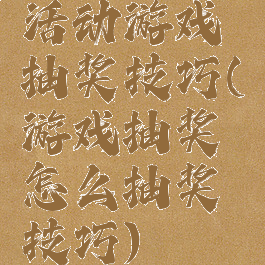 活动游戏
抽奖技巧(
游戏抽奖
怎么抽奖
技巧)